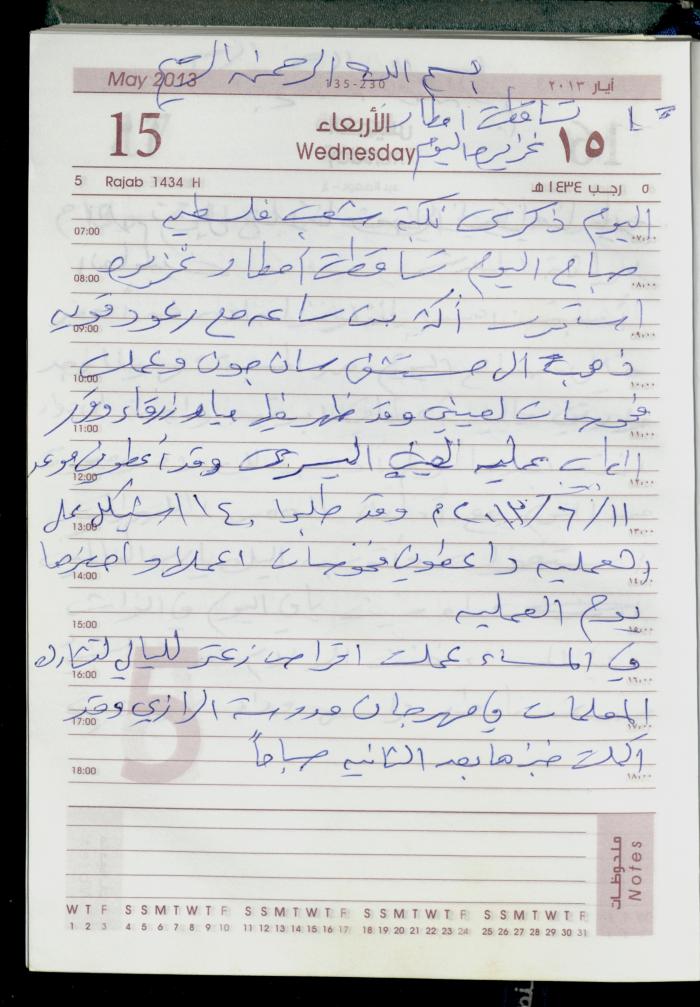 بسم الله الرحمن الرحيم
May 2013 135-230 أيار ٢٠١٣
تساقطت امطار
غزيره اليوم
15 الأربعاء Wednesday ١٥
5 Rajab 1434 H ٥ رجب ١٤٣٤ هـ
اليوم ذكرى نكبة شعب فلسطين
07:00 ٠٧:٠٠
صباح اليوم تساقطت أمطار غزيره
08:00 ٠٨:٠٠
استمرت أكثر من ساعه مع رعود قويه
09:00 ٠٩:٠٠
ذهبت ال مستشفى سان جون وعملت
10:00 ١٠:٠٠
فحوصات لعيني وقد ظهر فيها مياه زرقاء وقرر
11:00 ١١:٠٠
عمليه العين اليسرى وقد أعطوني موعد
12:00 ١٢:٠٠
١١/٦/٢٠١٣م وقد طلبوا ١٤٠٠ شيكل عمل
13:00 ١٣:٠٠
العمليه واعطوني فحوصات اعملها واحضرها
14:00 ١٤:٠٠
يوم العمليه
15:00 ١٥:٠٠
في المساء عملت اقراص زعتر لليالي لتشارك
16:00 ١٦:٠٠
المعلمات في مهرجان مدرسة الرازي وقد
17:00 ١٧:٠٠
اكملت خبزها بعد الثانيه صباحاً
18:00 ١٨:٠٠
ملحوظات
Notes
W T F S S M T W T F S S M T W T F S S M T W T F S S M T W T F
1 2 3 4 5 6 7 8 9 10 11 12 13 14 15 16 17 18 19 20 21 22 23 24 25 26 27 28 29 30 31